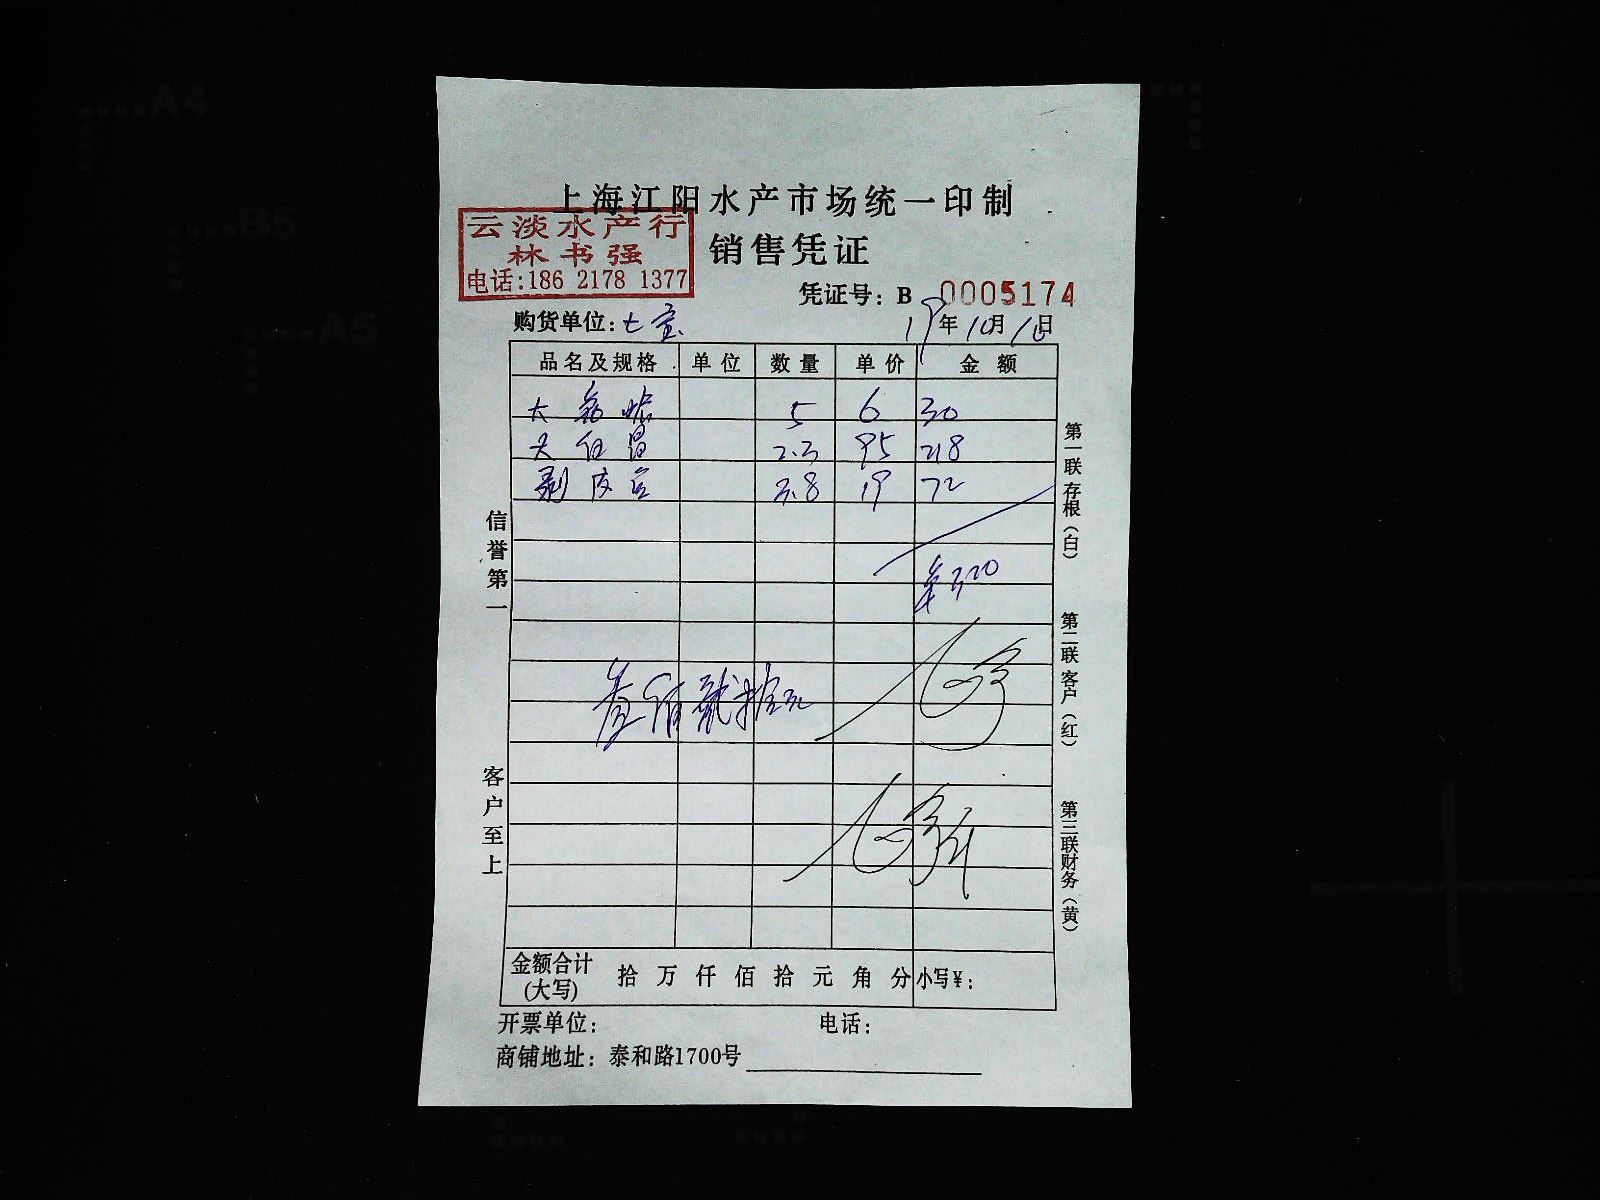 上海江阳水产市场统一印制
云淡水产行
林书强
电话:186 2178 1377
销售凭证
凭证号: B 0005174
购货单位:七宝
19年10月16日
品名及规格 单位 数量 单价 金额
大 5 6 30
2.3 95 218
剥皮 3.8 19 72
¥320
叁佰贰拾元
信誉第一
客户至上
第一联 存根(白)
第二联 客户(红)
第三联 财务(黄)
金额合计(大写) 拾 万 仟 佰 拾 元 角 分 小写¥:
开票单位: 电话:
商铺地址: 泰和路1700号
A4
B5
A5